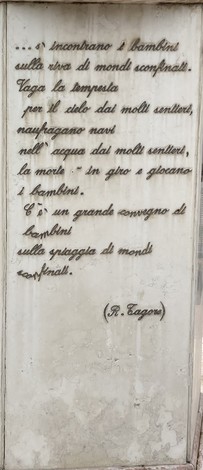 ... si incontrano i bambini
sulla riva di mondi sconfinati.
Vaga la tempesta
per il cielo dai molti sentieri,
naufragano navi
nell' acqua dai molti sentieri,
la morte è in giro e giocano
i bambini.
C'è un grande convegno di
bambini
sulla spiaggia di mondi
sconfinati.
(R. Tagore)